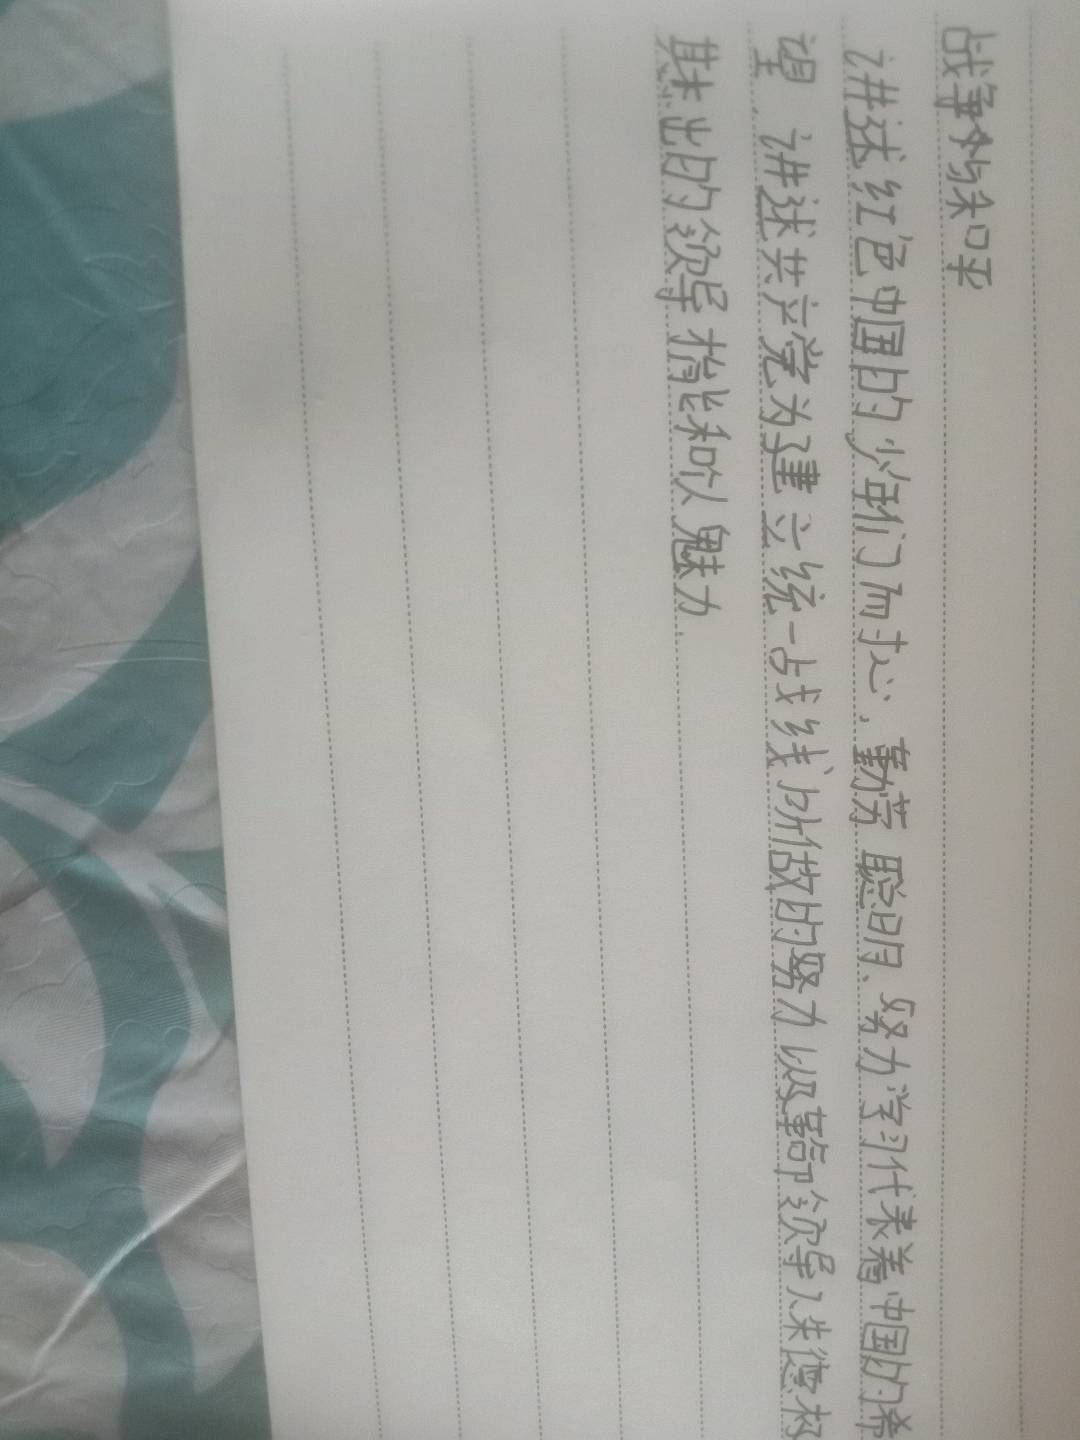 战争与和平
讲述红色中国的少年们耐心、勤劳聪明、努力学习代表着中国的希
望、讲述共产党为建立统一战线所做的努力以及红军领导人朱德极
其杰出的领导才能和个人魅力.